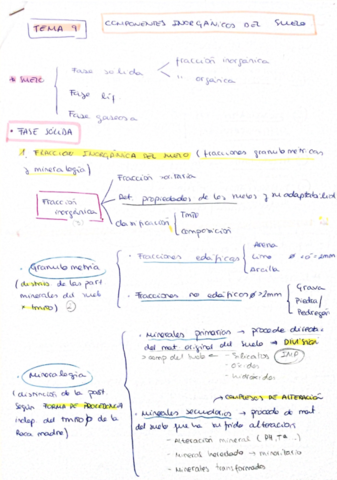 TEMA 9
COMPONENTES INORGÁNICOS DEL SUELO
* SUELO
Fase sólida
fracción inorgánica
" orgánica
Fase líq
Fase gaseosa
• FASE SÓLIDA
1. FRACCIÓN INORGÁNICA DEL SUELO (fracciones granulométricas
y mineralogía)
Fracción inorgánica
Fracción
Det. propiedades de los suelos y su adaptabilidad
clasificación
Tmño
composición
• Granulometría
(distrib. de las part
minerales del suelo
x tmño)
• Fracciones edáficas
Arena
Limo
Arcilla
Ø <2mm
• Fracciones no edáficas Ø>2mm
Grava
Piedra/
Pedregón
• Mineralogía
(distinción de la part
según FORMA DE PROCEDENCIA
indep. del tmño/o de la
roca madre)
• Minerales primarios → procede
del mat. original del suelo → DIVISIÓN
>comp del suelo ← - Silicatos
- Óxidos
COMPLEJOS DE ALTERACIÓN
• Minerales secundarios → procede de mat
del suelo que ha sufrido alteración
- Alteración mineral (PH, Tª..)
- Mineral heredado → minoritario
- Minerales transformados